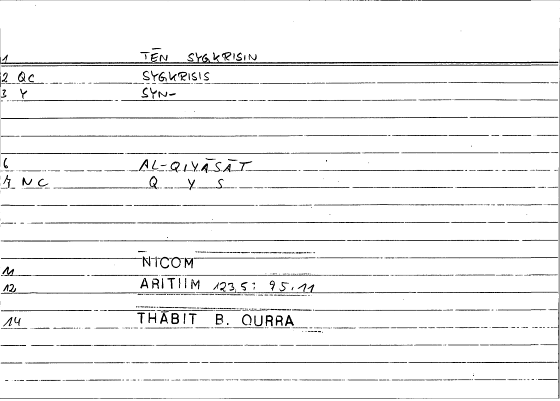 1 TĒN SYGKRISIN
2 QC SYGKRISIS
3 Y SYN-
6 AL-QIYĀSĀT
7 NC Q Y S
11 NICOM
12 ARITIIM 123,5: 95,11
14 THĀBIT B. QURRA